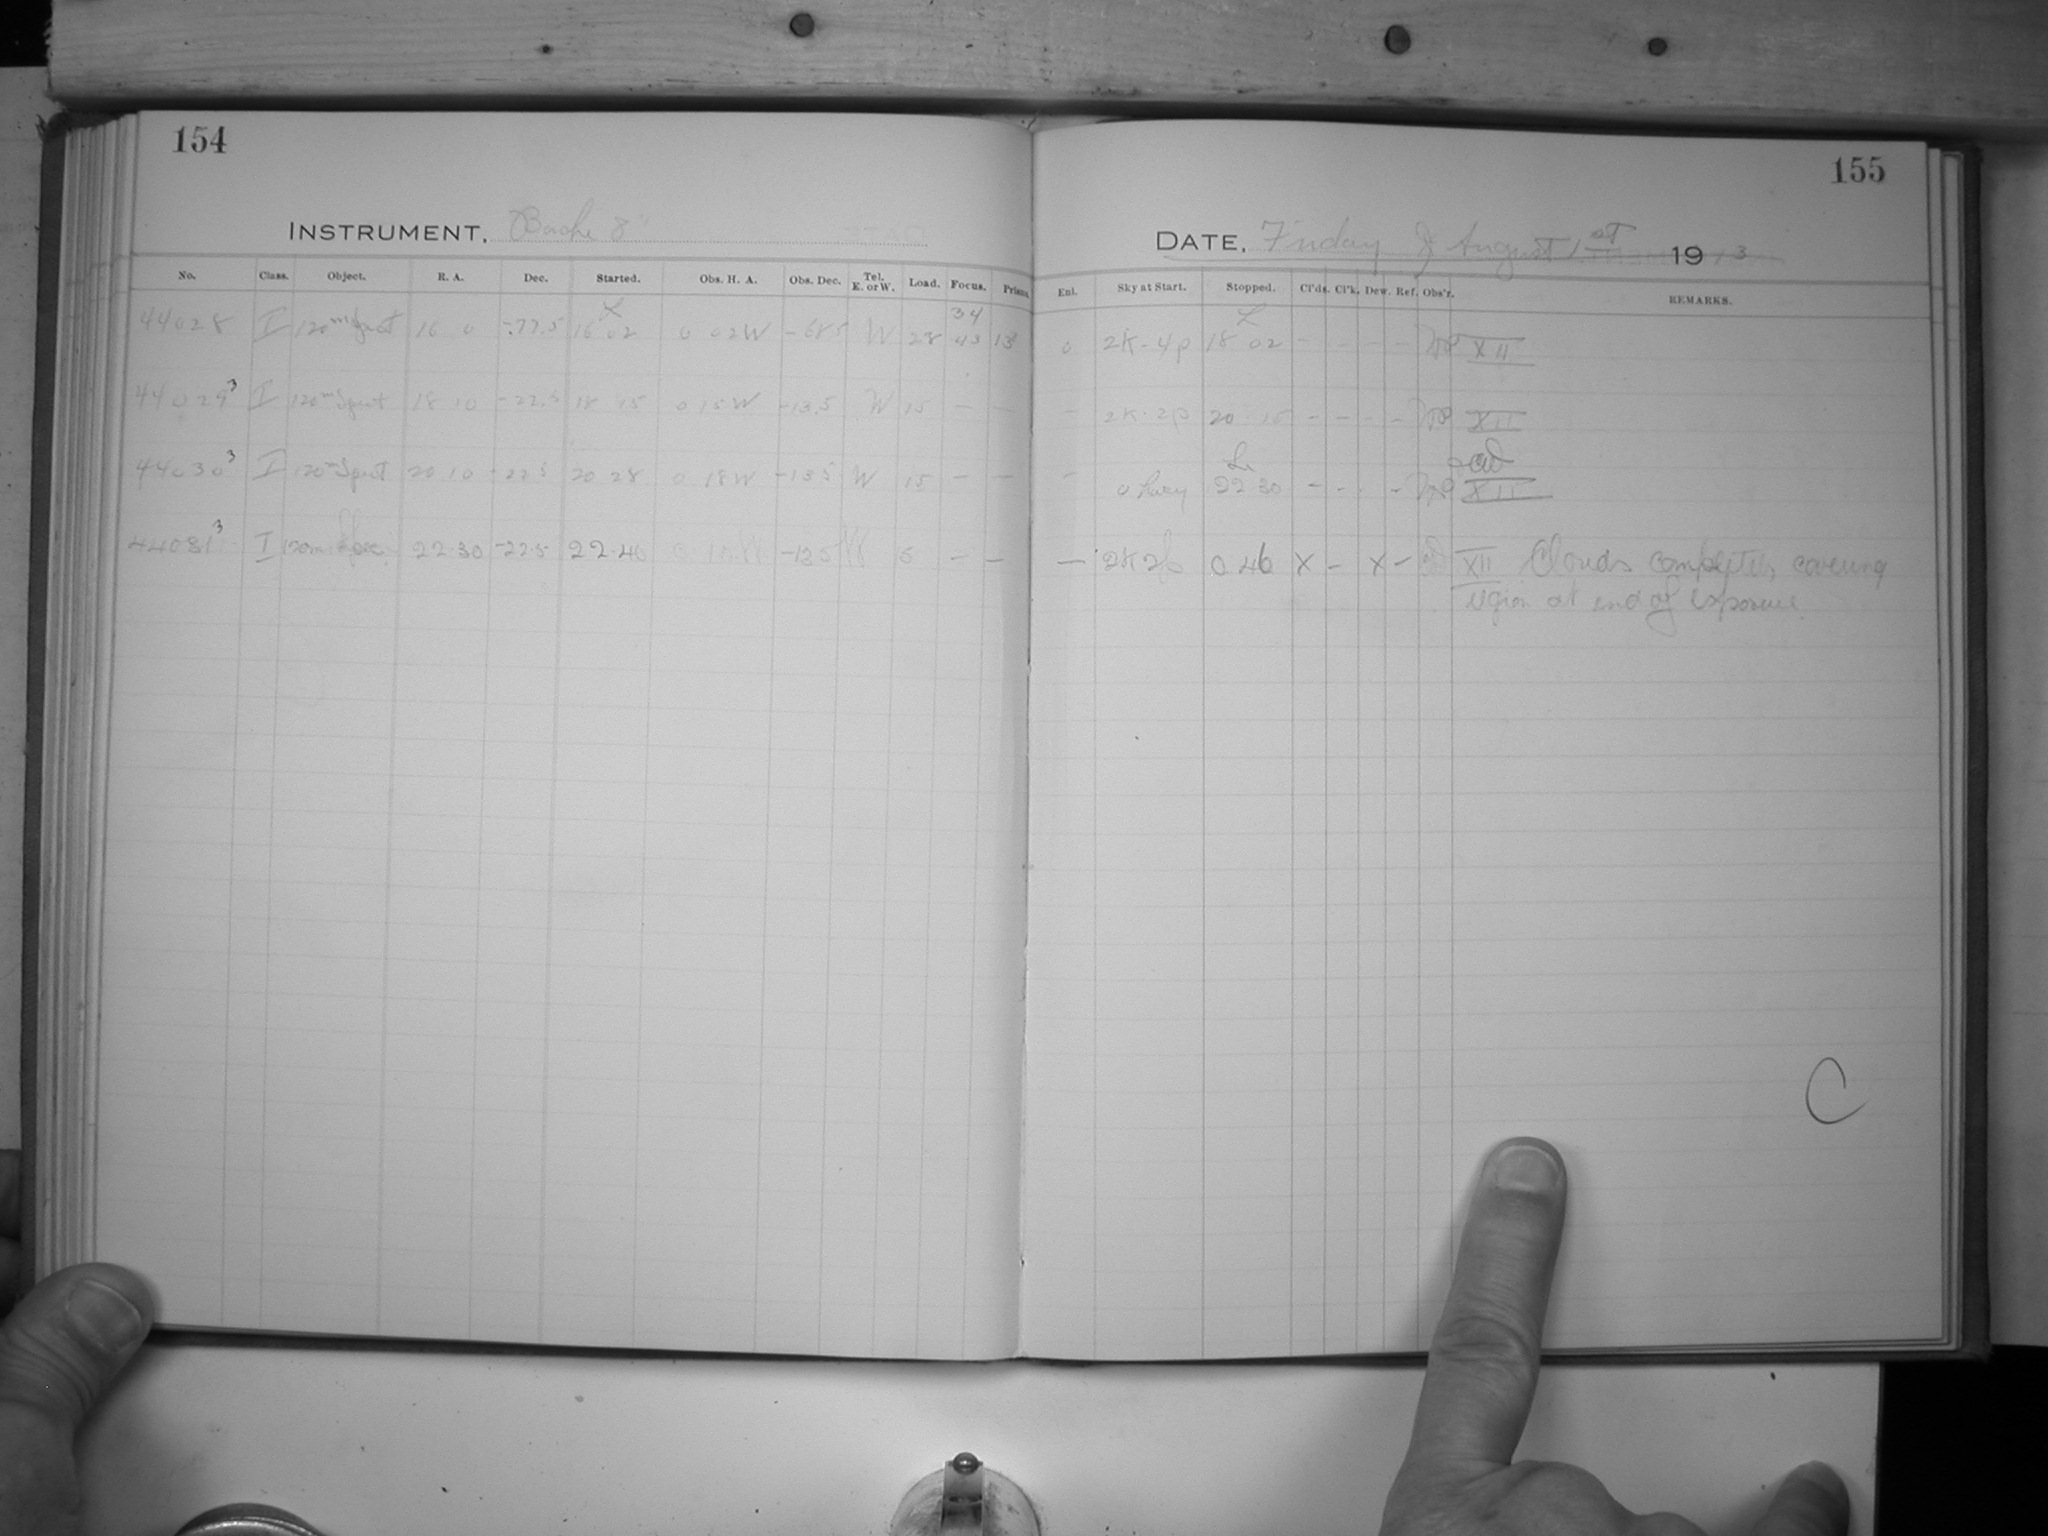 154
155
INSTRUMENT, Bache 8"
DATE, Friday August 1st 1913
No. Class. Object. R. A. Dec. Started. Obs. H. A. Obs. Dec. Tel. E. or W. Load. Focus. Prism. Enl. Sky at Start. Stopped. Cl'ds. Cl'k. Dew. Ref. Obs'r. REMARKS.
44028 I 120m Spect 16 0 -77.5 16 02 0 02W -68.5 W 28 34 43 13 0 2K-4p 18 02 - - - - XII
44029 3 I 120m Spect 18 10 -22.5 18 15 0 15W -13.5 W 15 - - - 2K-2p 20 15 - - - - XII
44030 3 I 120m Spect 20 10 -22.5 20 28 0 18W -13.5 W 15 - - - 22 30 - - - - XII
44031 3 I 120m Spec. 22.30 -22.5 22.40 -13.5 W - - - 2K2p 0 46 X - X - XII Clouds completely covering
region at end of exposure
C